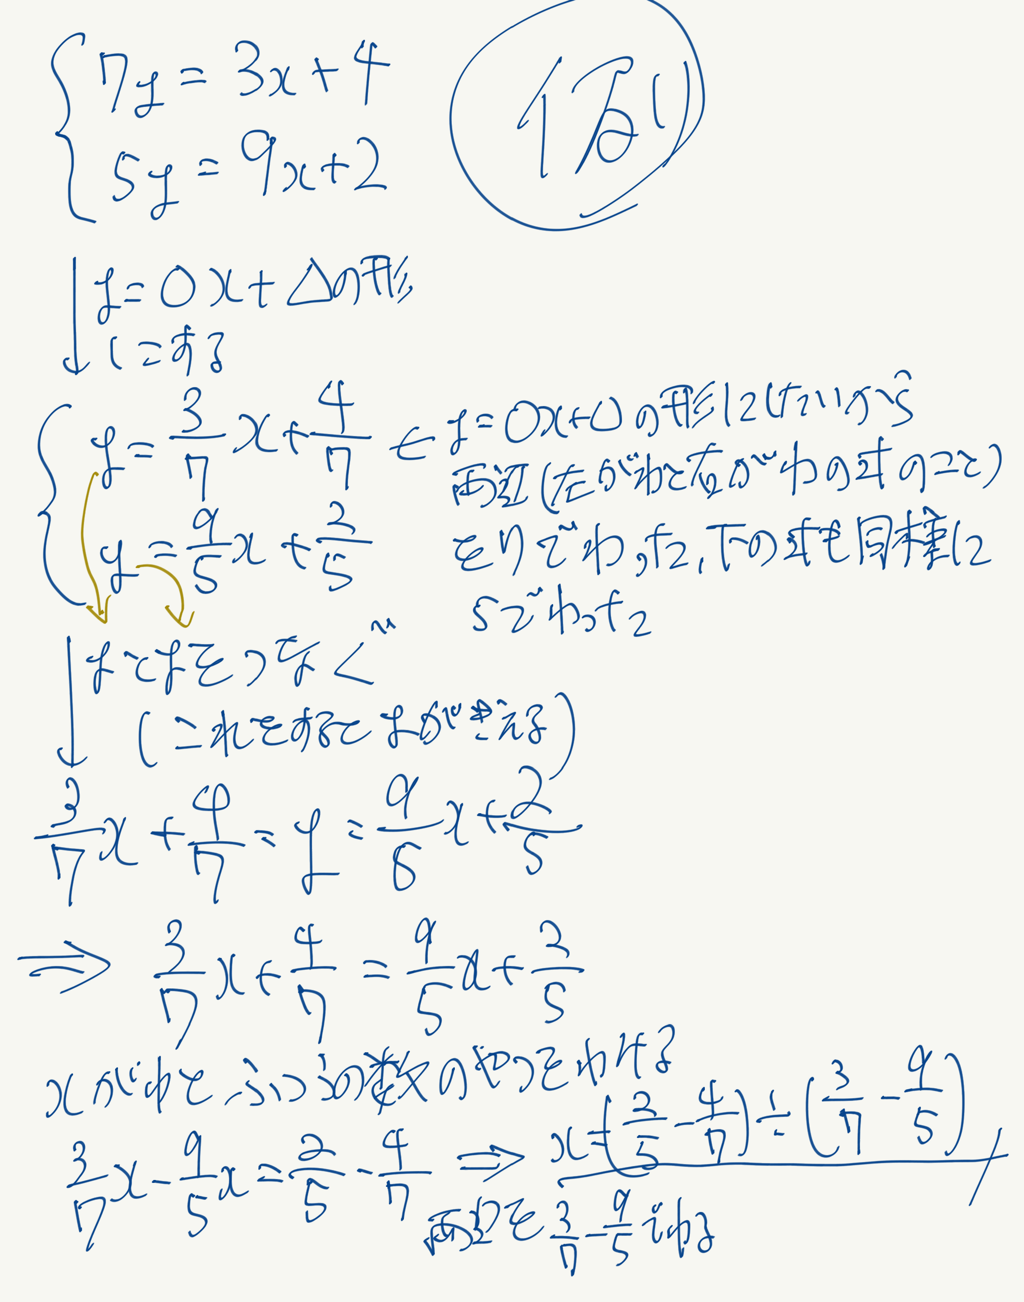 7y = 3x+4
5y = 9x+2
例
y=○x+△の形
にする
y=3/7x+4/7 ← y=○x+△の形にしたいから
両辺(左がわと右がわの式のこと)
y=9/5x+2/5
を7でわった,下の式も同様に
5でわった
yとyをつなぐ
(これをするとyがきえる)
3/7x+4/7=y=9/5x+2/5
⇒ 3/7x+4/7=9/5x+2/5
xがわとふつうの数のやつをわける
3/7x-9/5x=2/5-4/7 ⇒ x=(2/5-4/7)÷(3/7-9/5)
両辺を3/7-9/5でわる